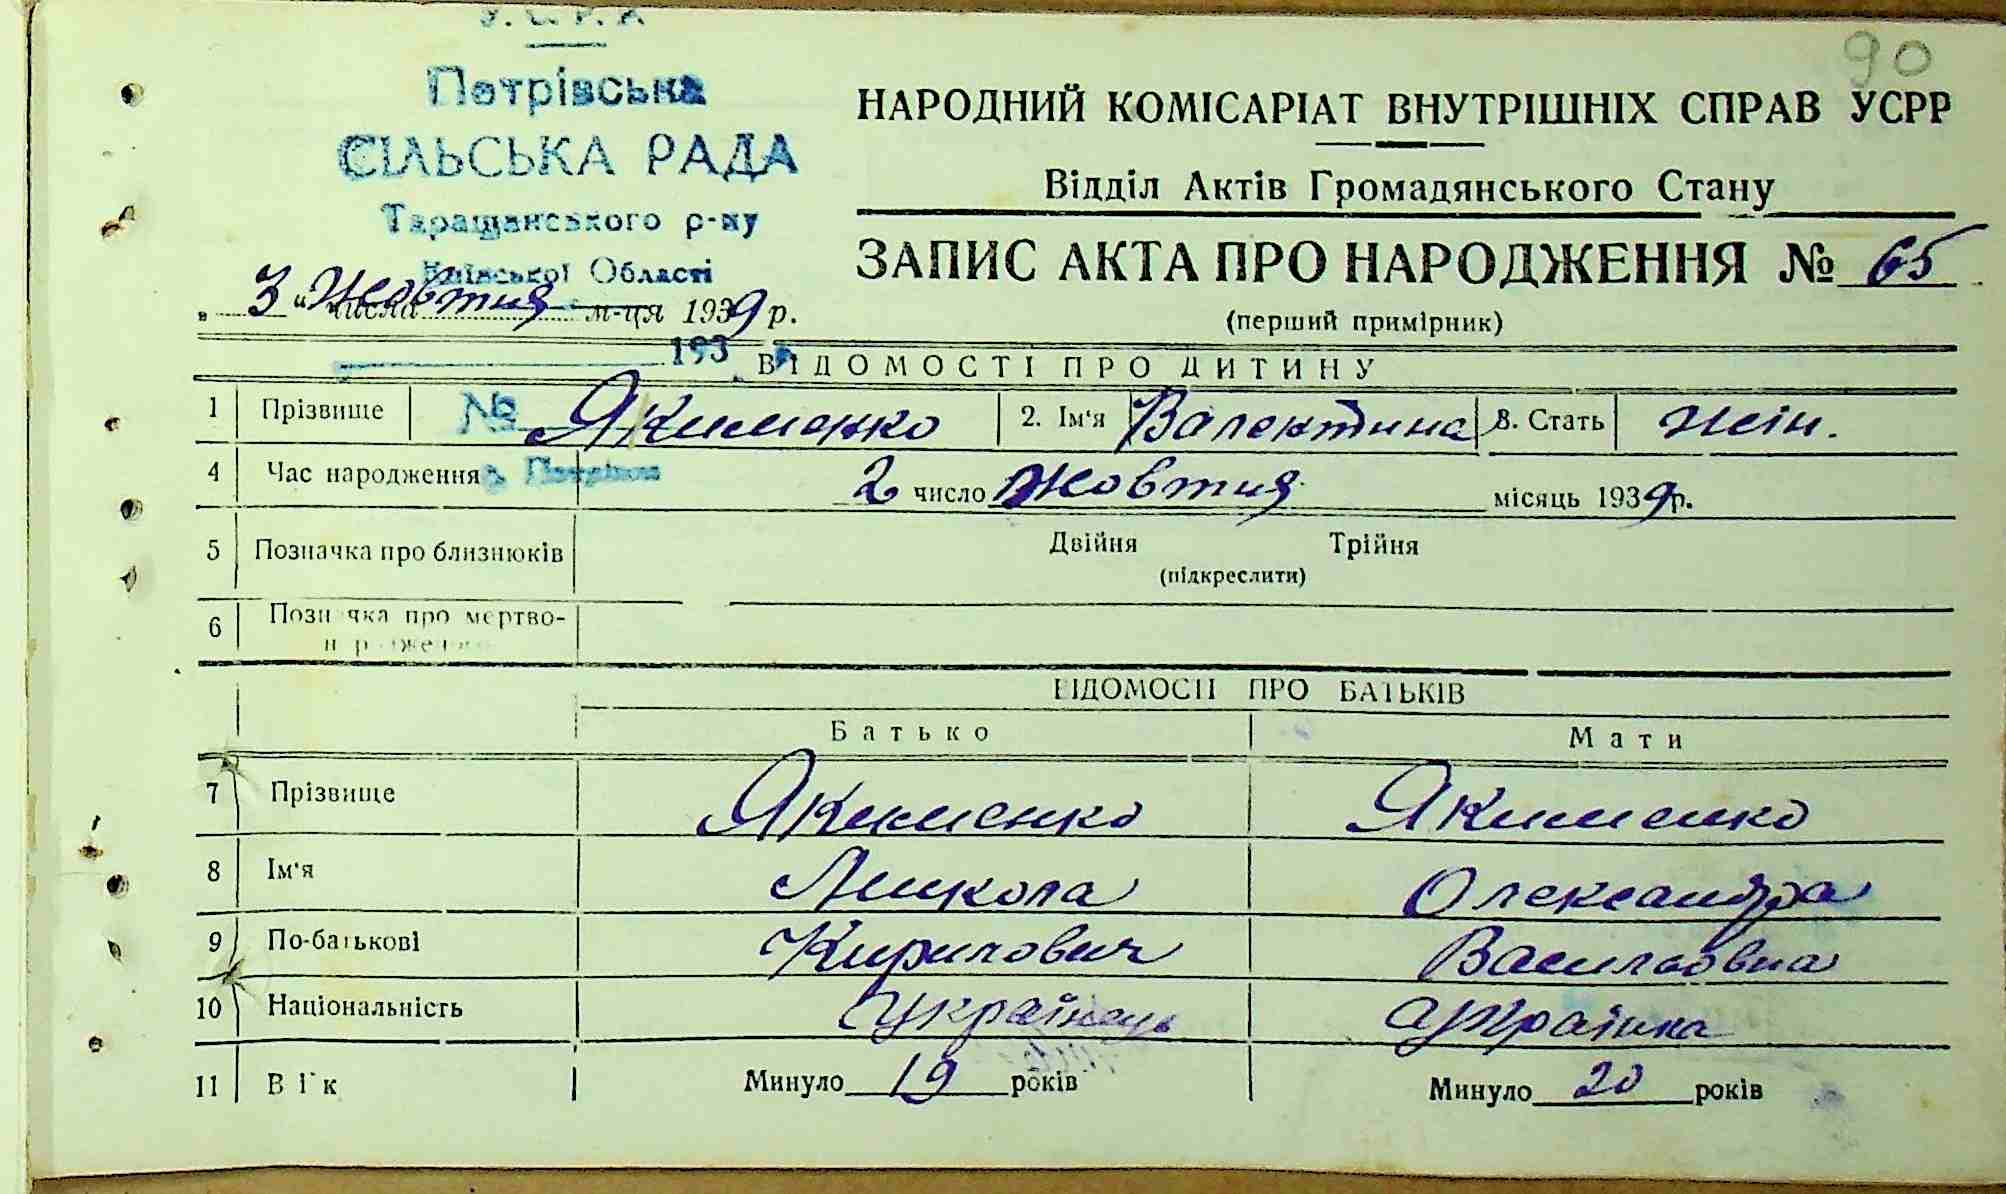 У. С. Р. Р.
90
Петрівська
СІЛЬСЬКА РАДА
Таращанського р-ну
Київської Області
193
№
НАРОДНИЙ КОМІСАРІАТ ВНУТРІШНІХ СПРАВ УСРР
Відділ Актів Громадянського Стану
ЗАПИС АКТА ПРО НАРОДЖЕННЯ № 65
(перший примірник)
„ 3 " числа Жовтня м-ця 1939 р.
ВІДОМОСТІ ПРО ДИТИНУ
1 Прізвище Якименко 2. Ім'я Валентина 3. Стать жін.
4 Час народження 2 число Жовтня місяць 1939 р.
5 Позначка про близнюків Двійня Трійня
(підкреслити)
6 Позначка про мертво-
народженого
ВІДОМОСТІ ПРО БАТЬКІВ
Батько Мати
7 Прізвище Якименко Якименко
8 Ім'я Микола Олександра
9 По-батькові Кирилович Васильовна
10 Національність Українець Українка
11 Вік Минуло 19 років Минуло 20 років